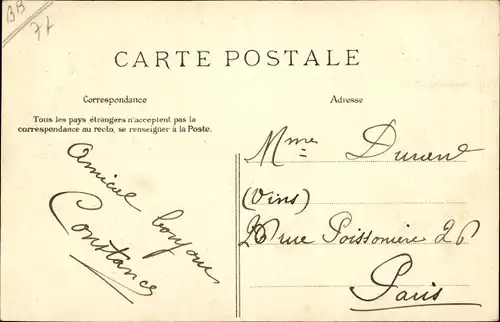 BB
77
CARTE POSTALE
Correspondance
Tous les pays étrangers n'acceptent pas la
correspondance au recto, se renseigner à la Poste.
Amical bonjour
Constance
Adresse
Mme
(Vins)
26 rue Poissonière 26
Paris